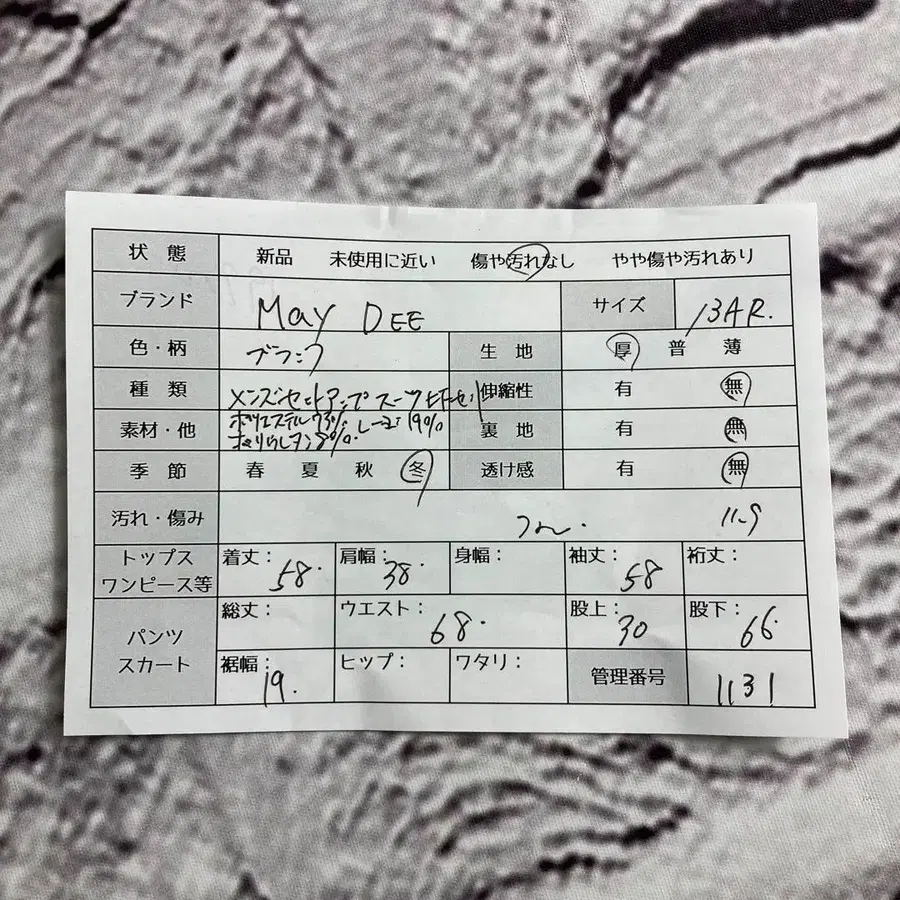 状 態 新品 未使用に近い 傷や汚れなし やや傷や汚れあり
ブランド May DEE サイズ 13AR.
色・柄 ブラック 生 地 厚 普 薄
種 類 メンズセットアップスーツ 伸縮性 有 無
素材・他 ポリエステル73% レーヨン19% 裏 地 有 無
ポリウレタン8%.
季 節 春 夏 秋 冬 透け感 有 無
汚れ・傷み 11-9
トップス ワンピース等 着丈: 58. 肩幅: 38. 身幅: 袖丈: 58 裄丈:
パンツ スカート 総丈: ウエスト: 68. 股上: 30 股下: 66.
裾幅: 19. ヒップ: ワタリ: 管理番号 1131